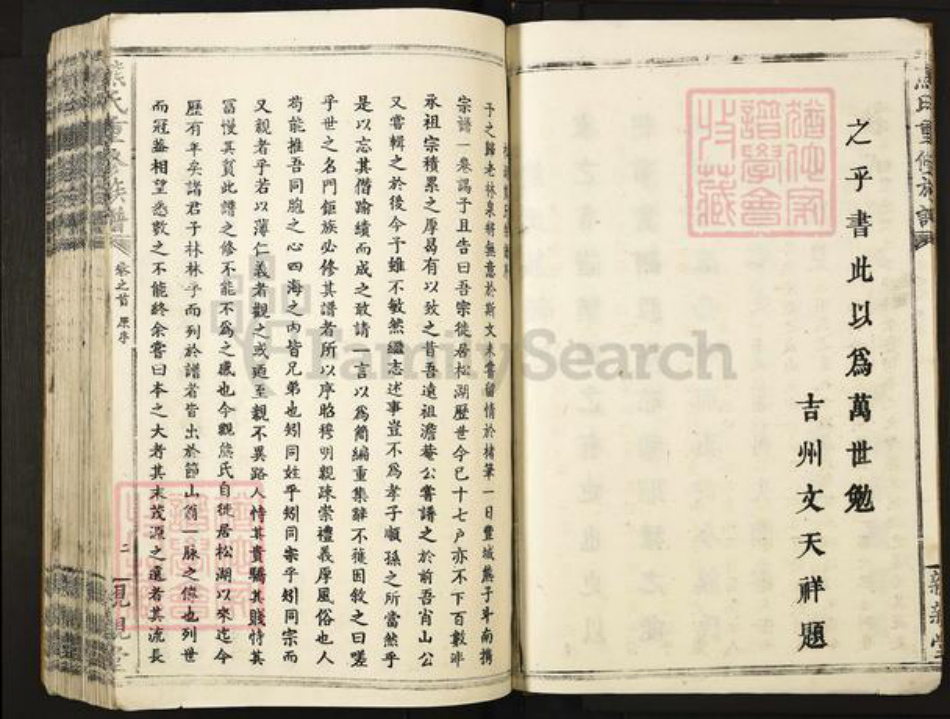 之乎書此以爲萬世勉
吉州文天祥題
予之歸老林泉將無意於斯文未嘗留情於楮筆一日豐城熊子斗南携
宗譜一卷謁予且告曰吾宗徙居松湖歷世今已十七戶亦不下百數非
承祖宗積累之厚曷有以致之昔吾遠祖澹菴公嘗譜之於前吾肖山公
又嘗輯之於後今予雖不敏然繼志述事豈不爲孝子順孫之所當然乎
是以忘其僭踰續而成之敢請一言以爲簡編重集辭不獲因敘之曰嗟
乎世之名門鉅族必修其譜者所以序昭穆明親疎崇禮義厚風俗也人
苟能推吾同胞之心四海之內皆兄弟也矧同姓乎矧同宗乎矧同宗而
又親者乎若以薄仁義者觀之或廼至親不異路人恃其貴驕其賤恃其
富慢其貧此譜之修不能不爲之感也今觀熊氏自徙居松湖以來迄今
歷有年矣諸君子林林乎而列於譜者皆出於節山翁一脉之傳也列世
而冠葢相望悉數之不能終余嘗曰本之大者其末茂源之遠者其流長
熊氏重修族譜
卷之首 原序
二
FamilySearch